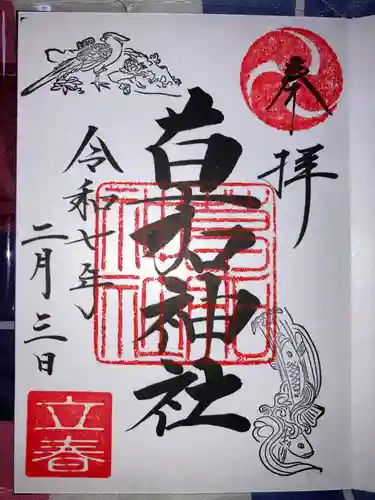 奉拝
神社
令和七年
二月三日
立春